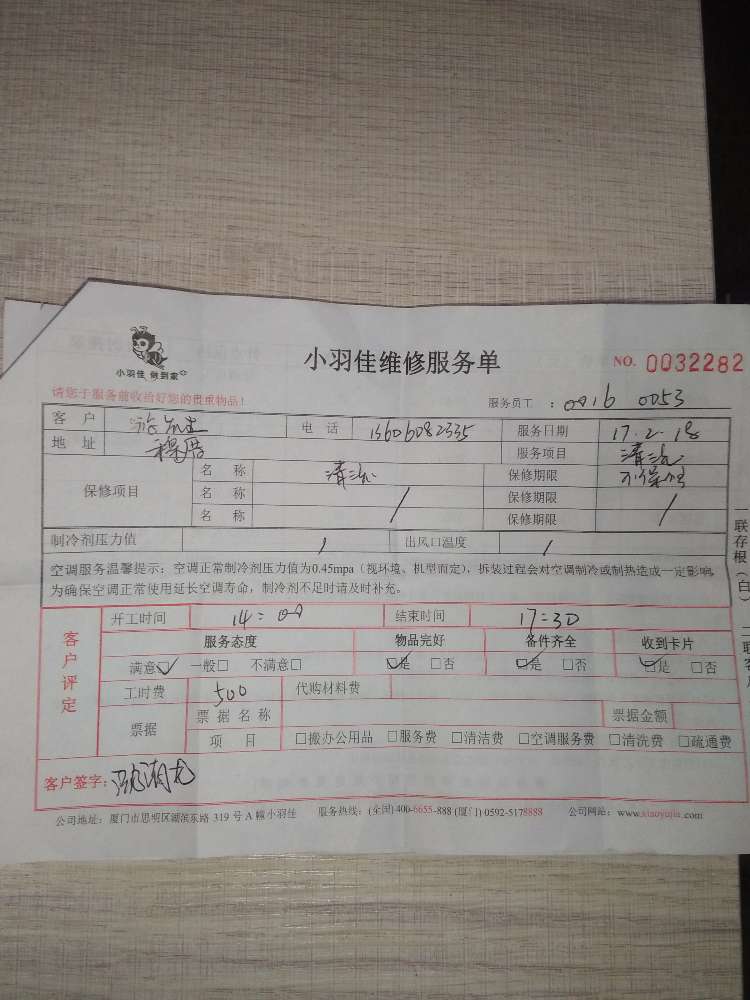 小羽佳 做到家
小羽佳维修服务单
NO. 0032282
请您于服务前收拾好您的贵重物品！
服务员工 ： 0916 0053
客 户 电 话 13606082335 服务日期 17.2.18
地 址 服务项目 清洗
保修项目 名 称 清洗 保修期限 不保修
名 称 / 保修期限 /
名 称 保修期限
制冷剂压力值 / 出风口温度 /
空调服务温馨提示：空调正常制冷剂压力值为0.45mpa（视环境、机型而定），拆装过程会对空调制冷或制热造成一定影响，
为确保空调正常使用延长空调寿命，制冷剂不足时请及时补充。
一联存根（白）
开工时间 14:00 结束时间 17:30
客户评定
服务态度 物品完好 备件齐全 收到卡片
满意☑ 一般□ 不满意□ ☑是 □否 ☑是 □否 ☑是 □否
工时费 500 代购材料费
票据 票据名称 票据金额
项 目 □搬办公用品 □服务费 □清洁费 □空调服务费 □清洗费 □疏通费
客户签字：
公司地址：厦门市思明区湖滨东路 319 号 A 幢小羽佳 服务热线：(全国) 400-6655-888 (厦门) 0592-5178888 公司网站：www.xiaoyujia.com